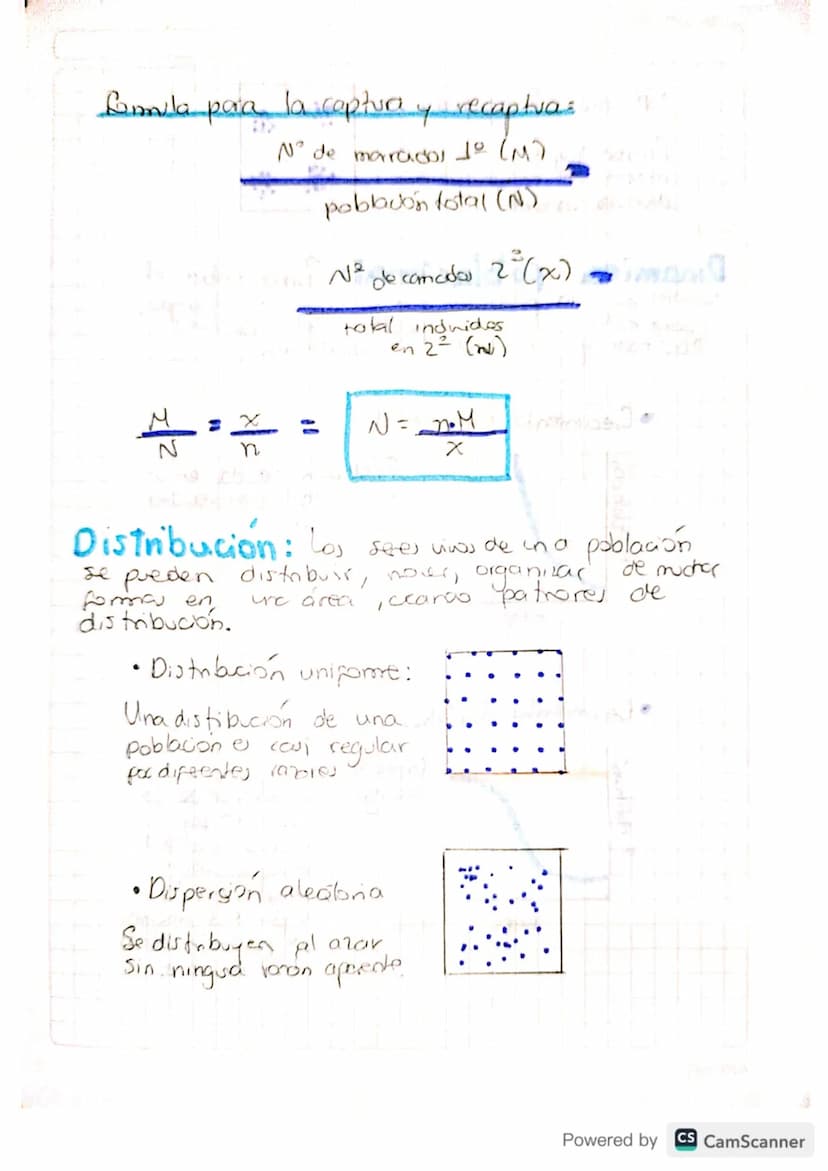 Formula para la captura y recaptura:
Nº de marcados 1º (M)
población total (N)
Nº de 2ª (x)
total individos
en 2ª (n)
M/N = x/n = N = n·M/x
Distribución: Los seres vivos de una población
se pueden distribuir, mover, organizar de muchas
formas en una área, creando patrones de
distribución.
• Distribución uniforme:
Una distibución de una
población es casi regular
por diferentes
• Dispersión aleatoria
Se distribuyen al azar
sin ninguna razón aparente.
Powered by CS CamScanner